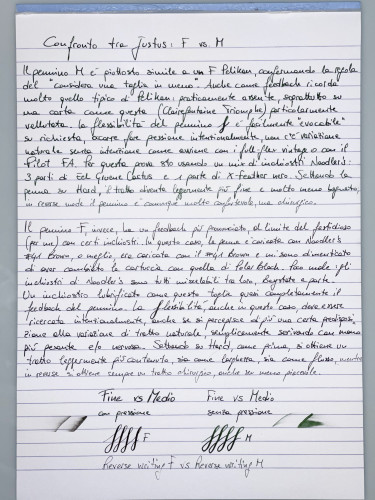 Confronto tra Justus: F vs M
Il pennino M è piuttosto simile a un F Pelikan, confermando la regola
del "considera una taglia in meno". Anche come feedback ricorda
molto quello tipico di Pelikan: praticamente assente, soprattutto su
una carta come questa (Clairefontaine Triomphe) particolarmente
vellutata. La flessibilità del pennino è facilmente "evocabile" su
richiesta, ossia fare pressione intenzionalmente, non c'è variazione
naturale senza intenzione come avviene con i full-flex vintage o con il
Pilot FA. Per questa prova sto usando un mix di inchiostri Noodler's:
3 parti di Eel Gruene Cactus e 1 parte di X-Feather nero. Settando la
penna su Hard, il tratto diventa leggermente più fine e molto meno bagnato,
in reverse mode il pennino è comunque molto confortevole, ma chirurgico.
Il pennino F, invece, ha un feedback più pronunciato, al limite del fastidioso
(per me) con certi inchiostri. In questo caso, la penna è caricata con Noodler's
#41 Brown, o meglio, era caricata con il #41 Brown e mi sono dimenticato
di aver cambiato la cartuccia con quella di Polar Black. Poco male: gli
inchiostri di Noodler's sono tutti miscelabili tra loro, Baystate a parte.
Un inchiostro lubrificato come questo "taglia" quasi completamente il
feedback del pennino. La flessibilità, anche in questo caso, deve essere
ricercata intenzionalmente, anche se si percepisce di più una certa predisposi-
zione alla variazione di tratto naturale, semplicemente scrivendo con mano
più pesante e/o nervosa. Settando su Hard, come prima, si ottiene un
tratto leggermente più contenuto, sia come larghezza, sia come flusso, mentre
in reverse si ottiene sempre un tratto chirurgico, anche se meno piacevole.
Fine vs Medio Fine vs Medio
con pressione senza pressione
F M
Reverse writing F vs Reverse writing M